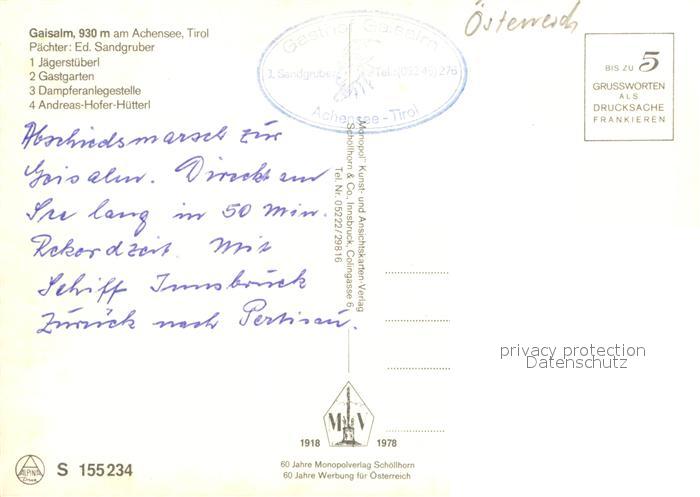 Österreich
Gaisalm, 930 m am Achensee, Tirol
Pächter: Ed. Sandgruber
1 Jägerstüberl
2 Gastgarten
3 Dampferanlegestelle
4 Andreas-Hofer-Hütterl
Gasthof Gaisalm
J. Sandgruber Tel.: (05246) 276
Achensee - Tirol
BIS ZU 5
GRUSSWORTEN
ALS
DRUCKSACHE
FRANKIEREN
Abschiedsmarsch zur
Geisalm. Direckt am
See lang in 50 Min.
Rekordzeit. Mit
Schiff Innsbrück
Zürück nach Pertisau.
„Monopol" Kunst- und Ansichtskarten-Verlag
Schöllhorn & Co., Innsbruck, Colingasse 6
Tel. Nr. 05222/29816
privacy protection
Datenschutz
M V
1918 1978
60 Jahre Monopolverlag Schöllhorn
60 Jahre Werbung für Österreich
ALPINA
Druck
S 155234